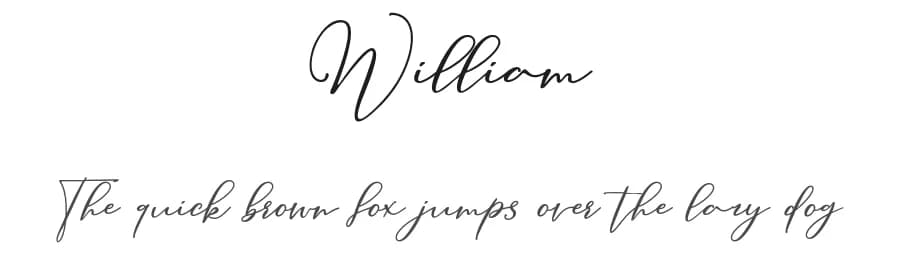 William
The quick brown fox jumps over the lazy dog